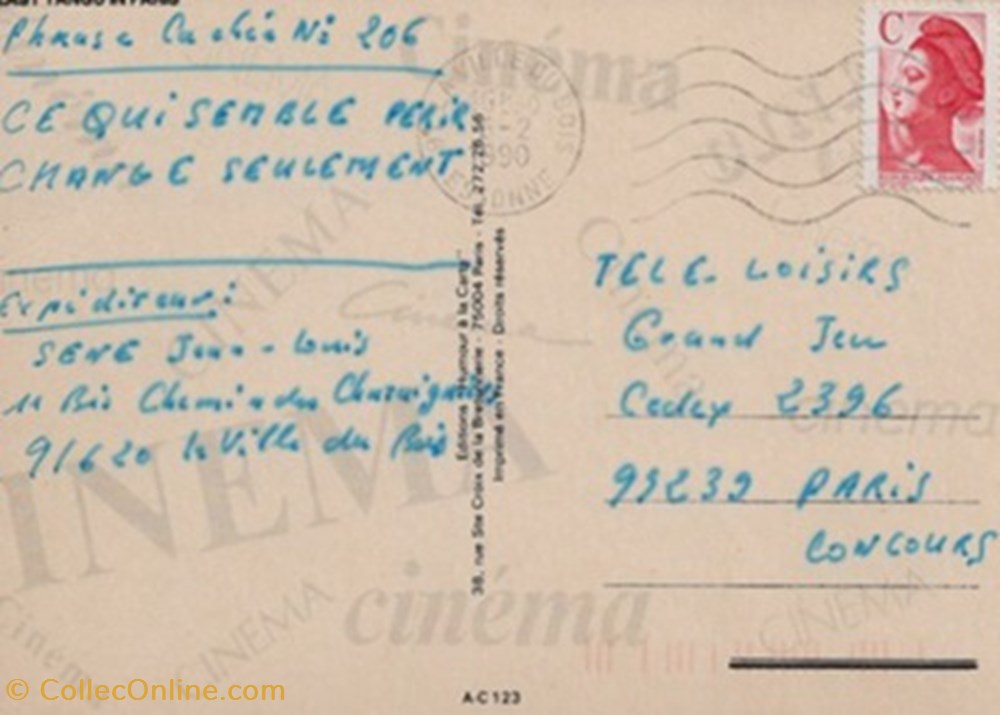 LAST TANGO IN PARIS
Phrase Cachée N° 206
CE QUI SEMBLE PERIR
CHANGE SEULEMENT
Expéditeur:
SENE Jean-Louis
11 Bis Chemin des
91620 la Ville du Bois
Editions "Humour à la Carte"
38, rue Ste Croix de la Bretonnerie - 75004 Paris - Tél. 272.28.56
Imprimé en France - Droits réservés
LA VILLE DU BOIS
1990
ESSONNE
C
TELE-LOISIRS
Grand Jeu
Cedex 2396
99239 PARIS
CONCOURS
Cinéma
CINEMA
Cinéma
Cinéma
cinéma
CINEMA
cinéma
Cinéma
CINEMA
CINEMA
A-C 123
© CollecOnline.com